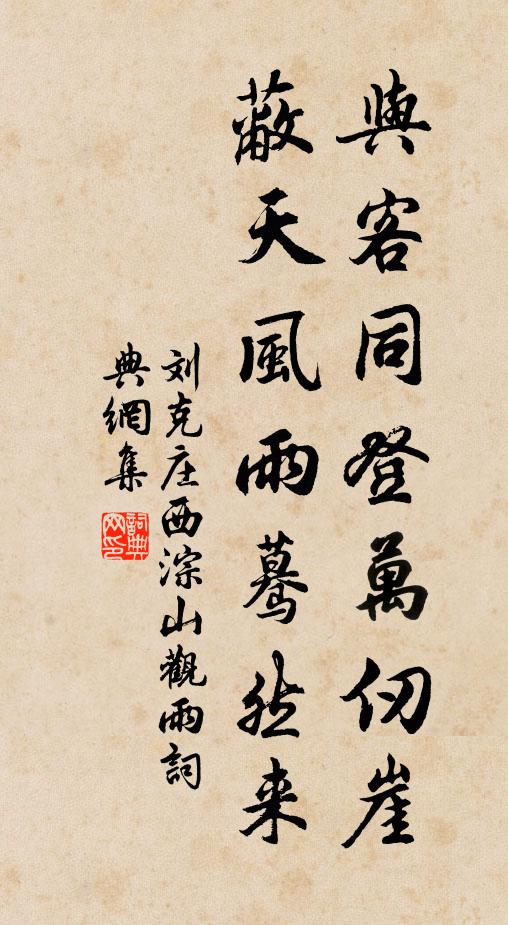 與客同登萬仞崖
蔽天風雨驀然来
刘克庄西淙山觀雨詞
典網集
詞典
网印